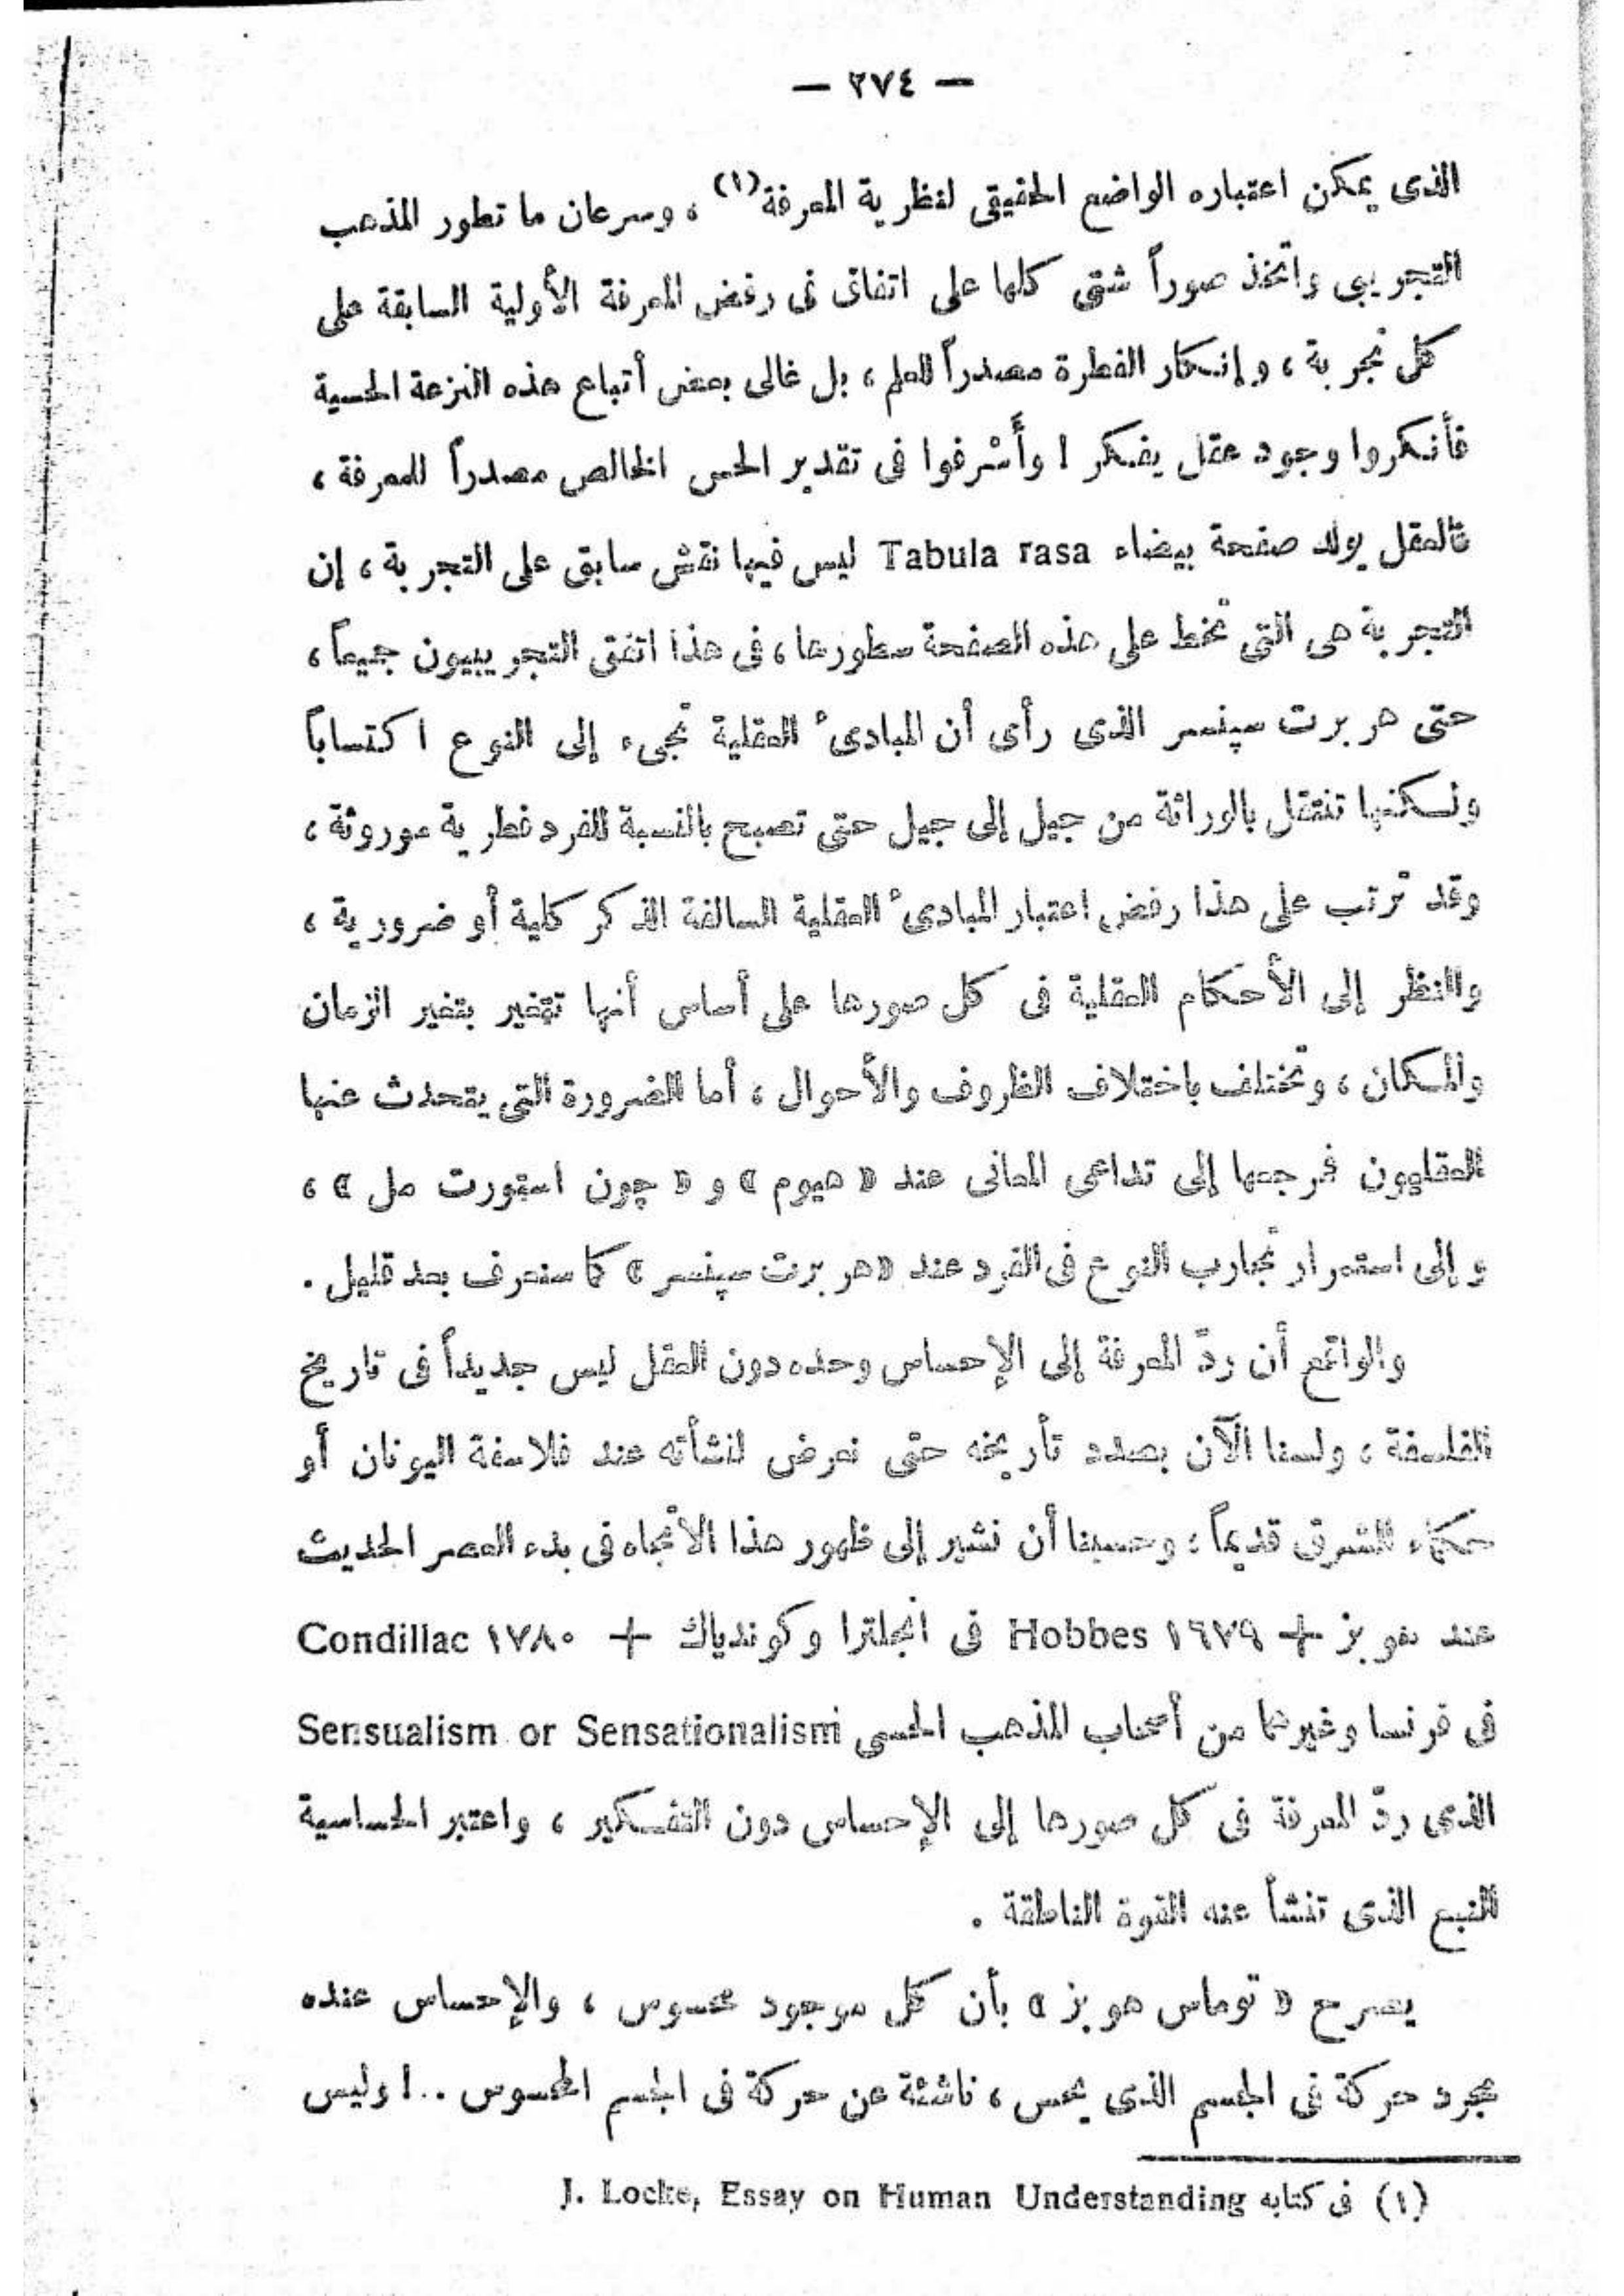 — ٢٧٤ —
الذى يمكن اعتباره الواضع الحقيقى لنظرية المعرفة(١) ، وسرعان ما تطور المذهب
التجريبى واتخذ صوراً شتى كلها على اتفاق فى رفض المعرفة الأولية السابقة على
كل تجربة ، وإنكار الفطرة مصدراً للعلم ، بل غالى بعض أتباع هذه النزعة الحسية
فأنكروا وجود عقل يفكر ! وأَسْرفوا فى تقدير الحس الخالص مصدراً للمعرفة ،
فالعقل يولد صفحة بيضاء Tabula rasa ليس فيها نقش سابق على التجربة ، إن
التجربة هى التى تخط على هذه الصفحة سطورها ، فى هذا اتفق التجريبيون جميعاً ،
حتى هربرت سپنسر الذى رأى أن المبادىء العقلية تجىء إلى النوع اكتساباً
ولكنها تنتقل بالوراثة من جيل إلى جيل حتى تصبح بالنسبة للفرد فطرية موروثة ،
وقد ترتب على هذا رفض اعتبار المبادىء العقلية السالفة الذكر كلية أو ضرورية ،
والنظر إلى الأحكام العقلية فى كل صورها على أساس أنها تتغير بتغير الزمان
والمكان ، وتختلف باختلاف الظروف والأحوال ، أما الضرورة التى يتحدث عنها
العقليون فمرجعها إلى تداعى المعانى عند « هيوم » و « چون استورت مل » ،
وإلى استمرار تجارب النوع فى الفرد عند « هربرت سپنسر » كما سنعرف بعد قليل .
والواقع أن ردّ المعرفة إلى الإحساس وحده دون العقل ليس جديداً فى تاريخ
الفلسفة ، ولسنا الآن بصدد تأريخه حتى نعرض لنشأته عند فلاسفة اليونان أو
حكماء الشرق قديماً ؛ وحسبنا أن نشير إلى ظهور هذا الاتجاه فى بدء العصر الحديث
عند هوبز + ١٦٧٩ Hobbes فى انجلترا وكوندياك + ١٧٨٠ Condillac
فى فرنسا وغيرهما من أصحاب المذهب الحسى Sensualism or Sensationalism
الذى ردّ المعرفة فى كل صورها إلى الإحساس دون التفكير ، واعتبر الحساسية
النبع الذى تنشأ عنه القوة الناطقة .
يصرح « توماس هوبز » بأن كل موجود محسوس ، والإحساس عنده
مجرد حركة فى الجسم الذى يحس ، ناشئة عن حركة فى الجسم المحسوس .. ! وليس
(١) فى كتابه J. Locke, Essay on Human Understanding